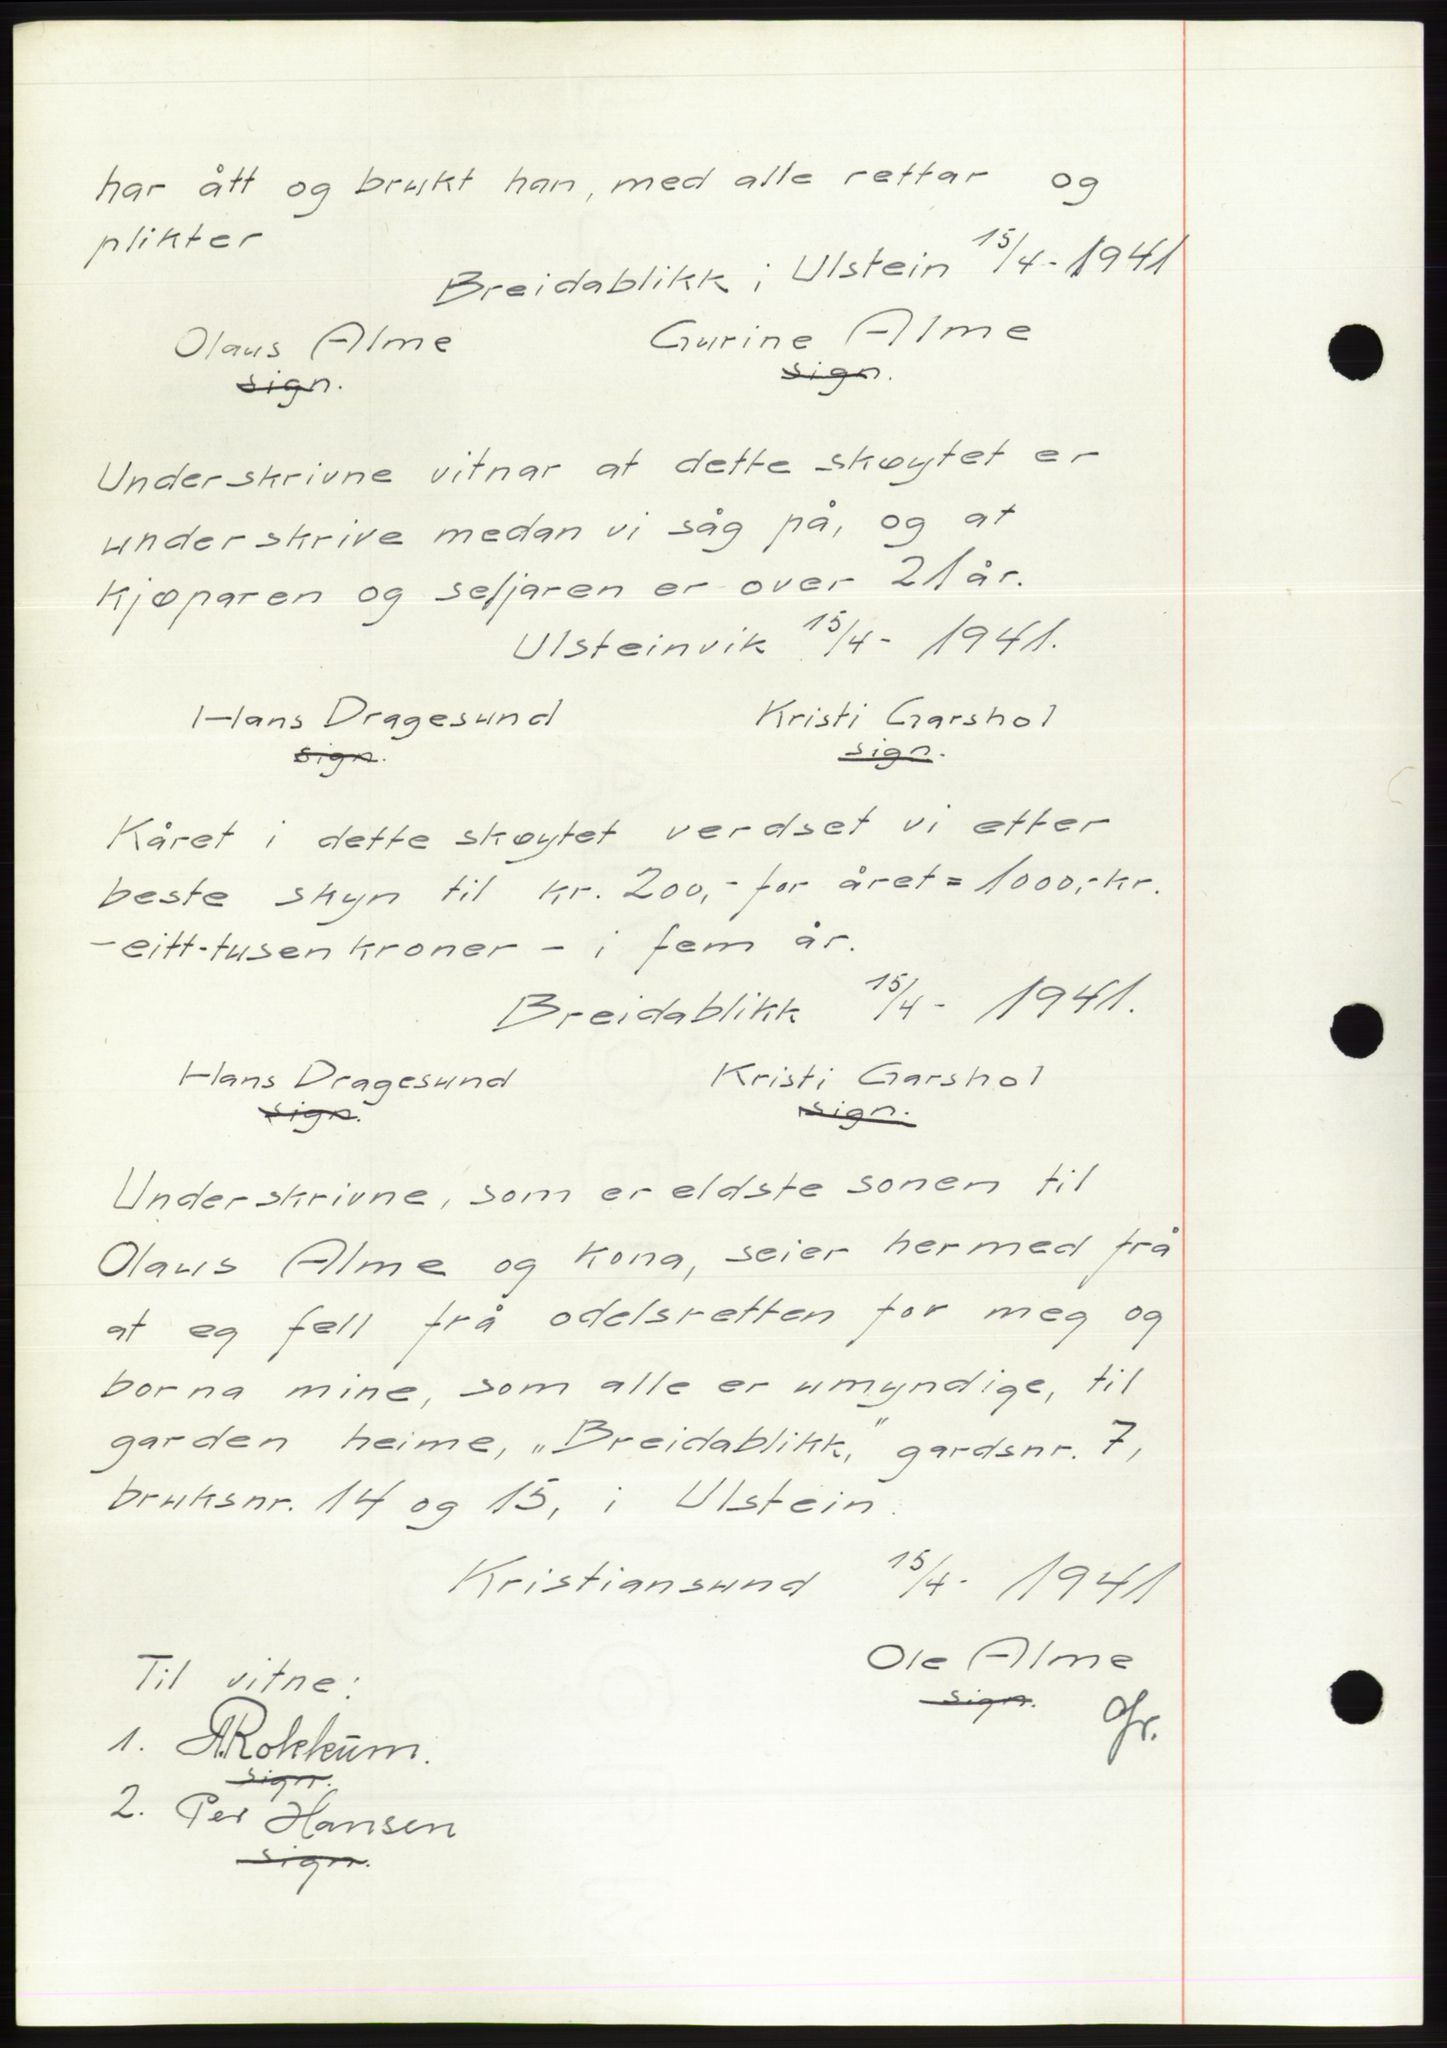 har ått og brukt han, med alle rettar og
plikter
Breidablikk i Ulstein 15/4-1941
Olaus Alme Gurine Alme
sign. sign.
Underskrivne vitnar at dette skøytet er
underskrive medan vi såg på, og at
kjøparen og seljaren er over 21 år.
Ulsteinvik 15/4- 1941.
Hans Dragesund Kristi Garshol
sign. sign.
Kåret i dette skøytet verdset vi etter
beste skyn til kr. 200,- for året = 1000,-kr.
-eitt-tusen kroner - i fem år.
Breidablikk 15/4- 1941.
Hans Dragesund Kristi Garshol
sign. sign.
Underskrivne, som er eldste sonen til
Olaus Alme og kona, seier hermed frå
at eg fell frå odelsretten for meg og
borna mine, som alle er umyndige, til
garden heime, „Breidablikk," gardsnr. 7,
bruksnr. 14 og 15, i Ulstein.
Kristiansund 15/4- 1941
Ole Alme
sign.
Til vitne:
1. A. Rokkum.
sign.
2. Per Hansen
sign.